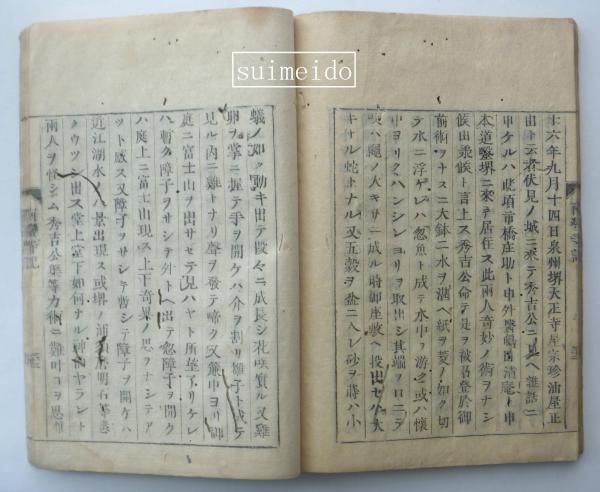 suimeido
十六年九月十四日泉州堺天正寺屋宗珍油屋正
出ト云者伏見ノ城ニ來テ秀吉公ニ見ヘ雜話ニ
申ケルハ此頃市橋庄助ト申外醫 淸庵ト申
本道醫堺ニ來テ居住ス此兩人奇妙ノ術ヲナシ
候由 候ト言上ス秀吉公命テ是ヲ被召登於御
前術ヲナスニ大鉢ニ水ヲ湛ヘ紙ヲ菱ノ如ク切
テ水ニ浮ケレハ忽魚ト成テ水中ヲ游ク或ハ懷
中ヨリクハンシンヨリヲ取出シ其端ヲ口ニテ
吹ハ繩ノ大キサニ成ル時御座敷ヘ投出セハ大
キナル蛇トナル又五穀ヲ盆ニ入レ砂ヲ蒔ハ小
蟻ノ如ク動キ出テ段々ニ成長シ花咲實ル又雞
卵ヲ掌ニ握テ手ヲ開ケハ介ヲ割リ雛子ト成テ
見ル内ニ雞トナリ聲ヲ發テ啼ク又 中ヨリ御
庭ニ富士山ヲ出サセテ見ハヤト所望アリケレ
ハ暫ク障子ヲサシテ外ヘ出テ忽障子ヲ開ク
ハ庭上ニ富士山現ス上下奇異ノ思ヲナシテア
ット感ス又障子ヲサシテ暫シテ障子ヲ開ケハ
近江湖水ノ八景出現ス或堺ノ浦 明石
クウツシ出ス堂上堂下如何ナル神 ヤラント
兩人ヲ怪シム秀吉公渠等カ術ニ難叶コヲ思